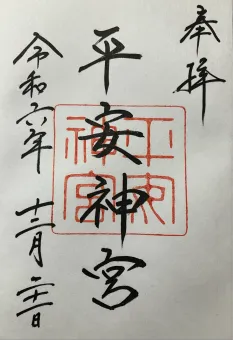 奉拝
平安神宮
令和六年 十二月 二十一日
平安
神宮